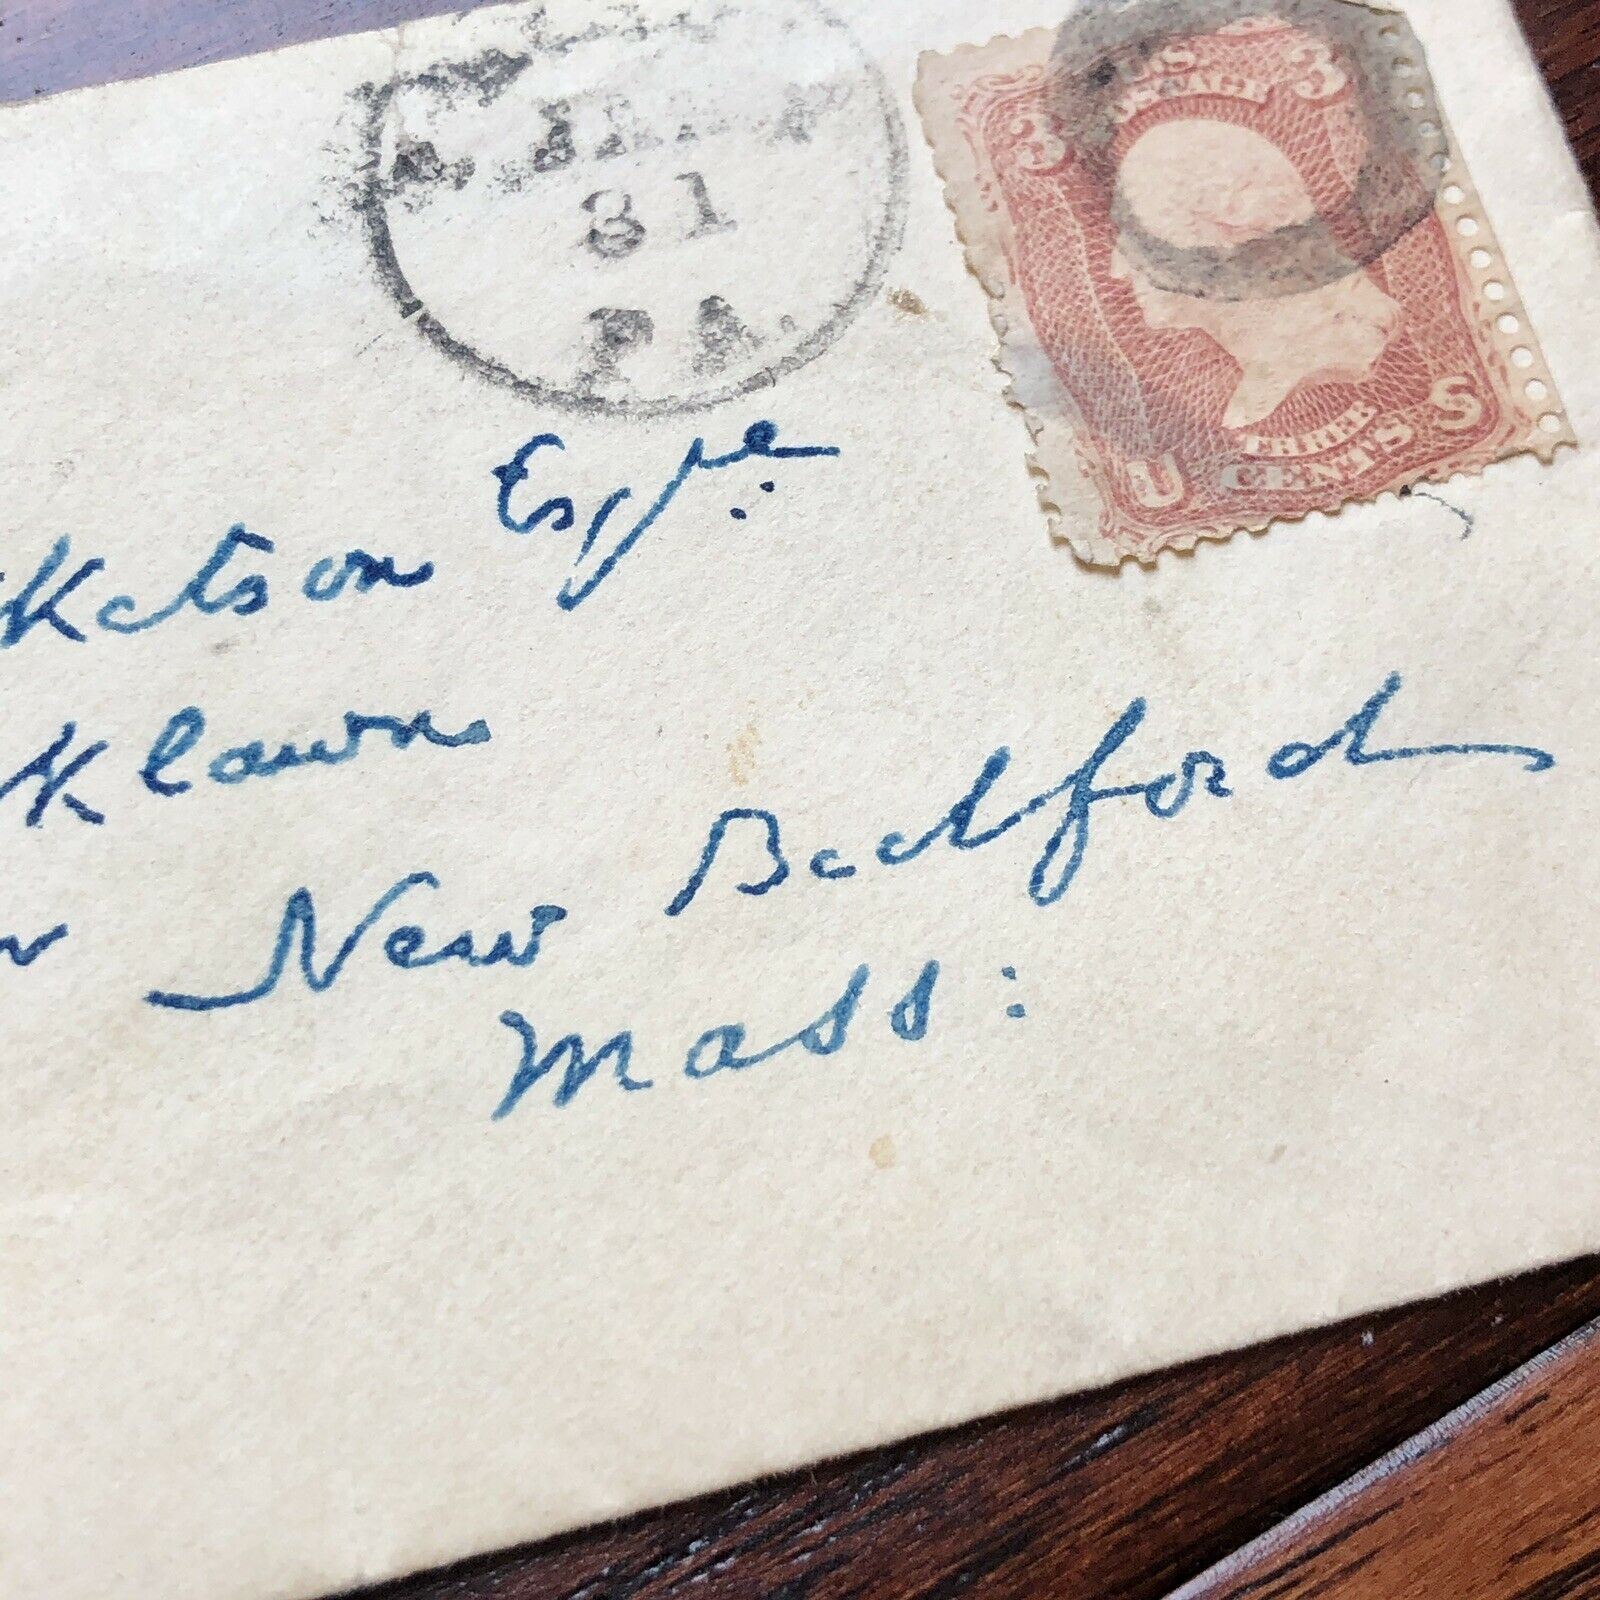 31
PA.
U.S. POSTAGE
3 3
THREE
U CENTS S
Ketson Esqre.
Klawn
New Bedford
Mass: